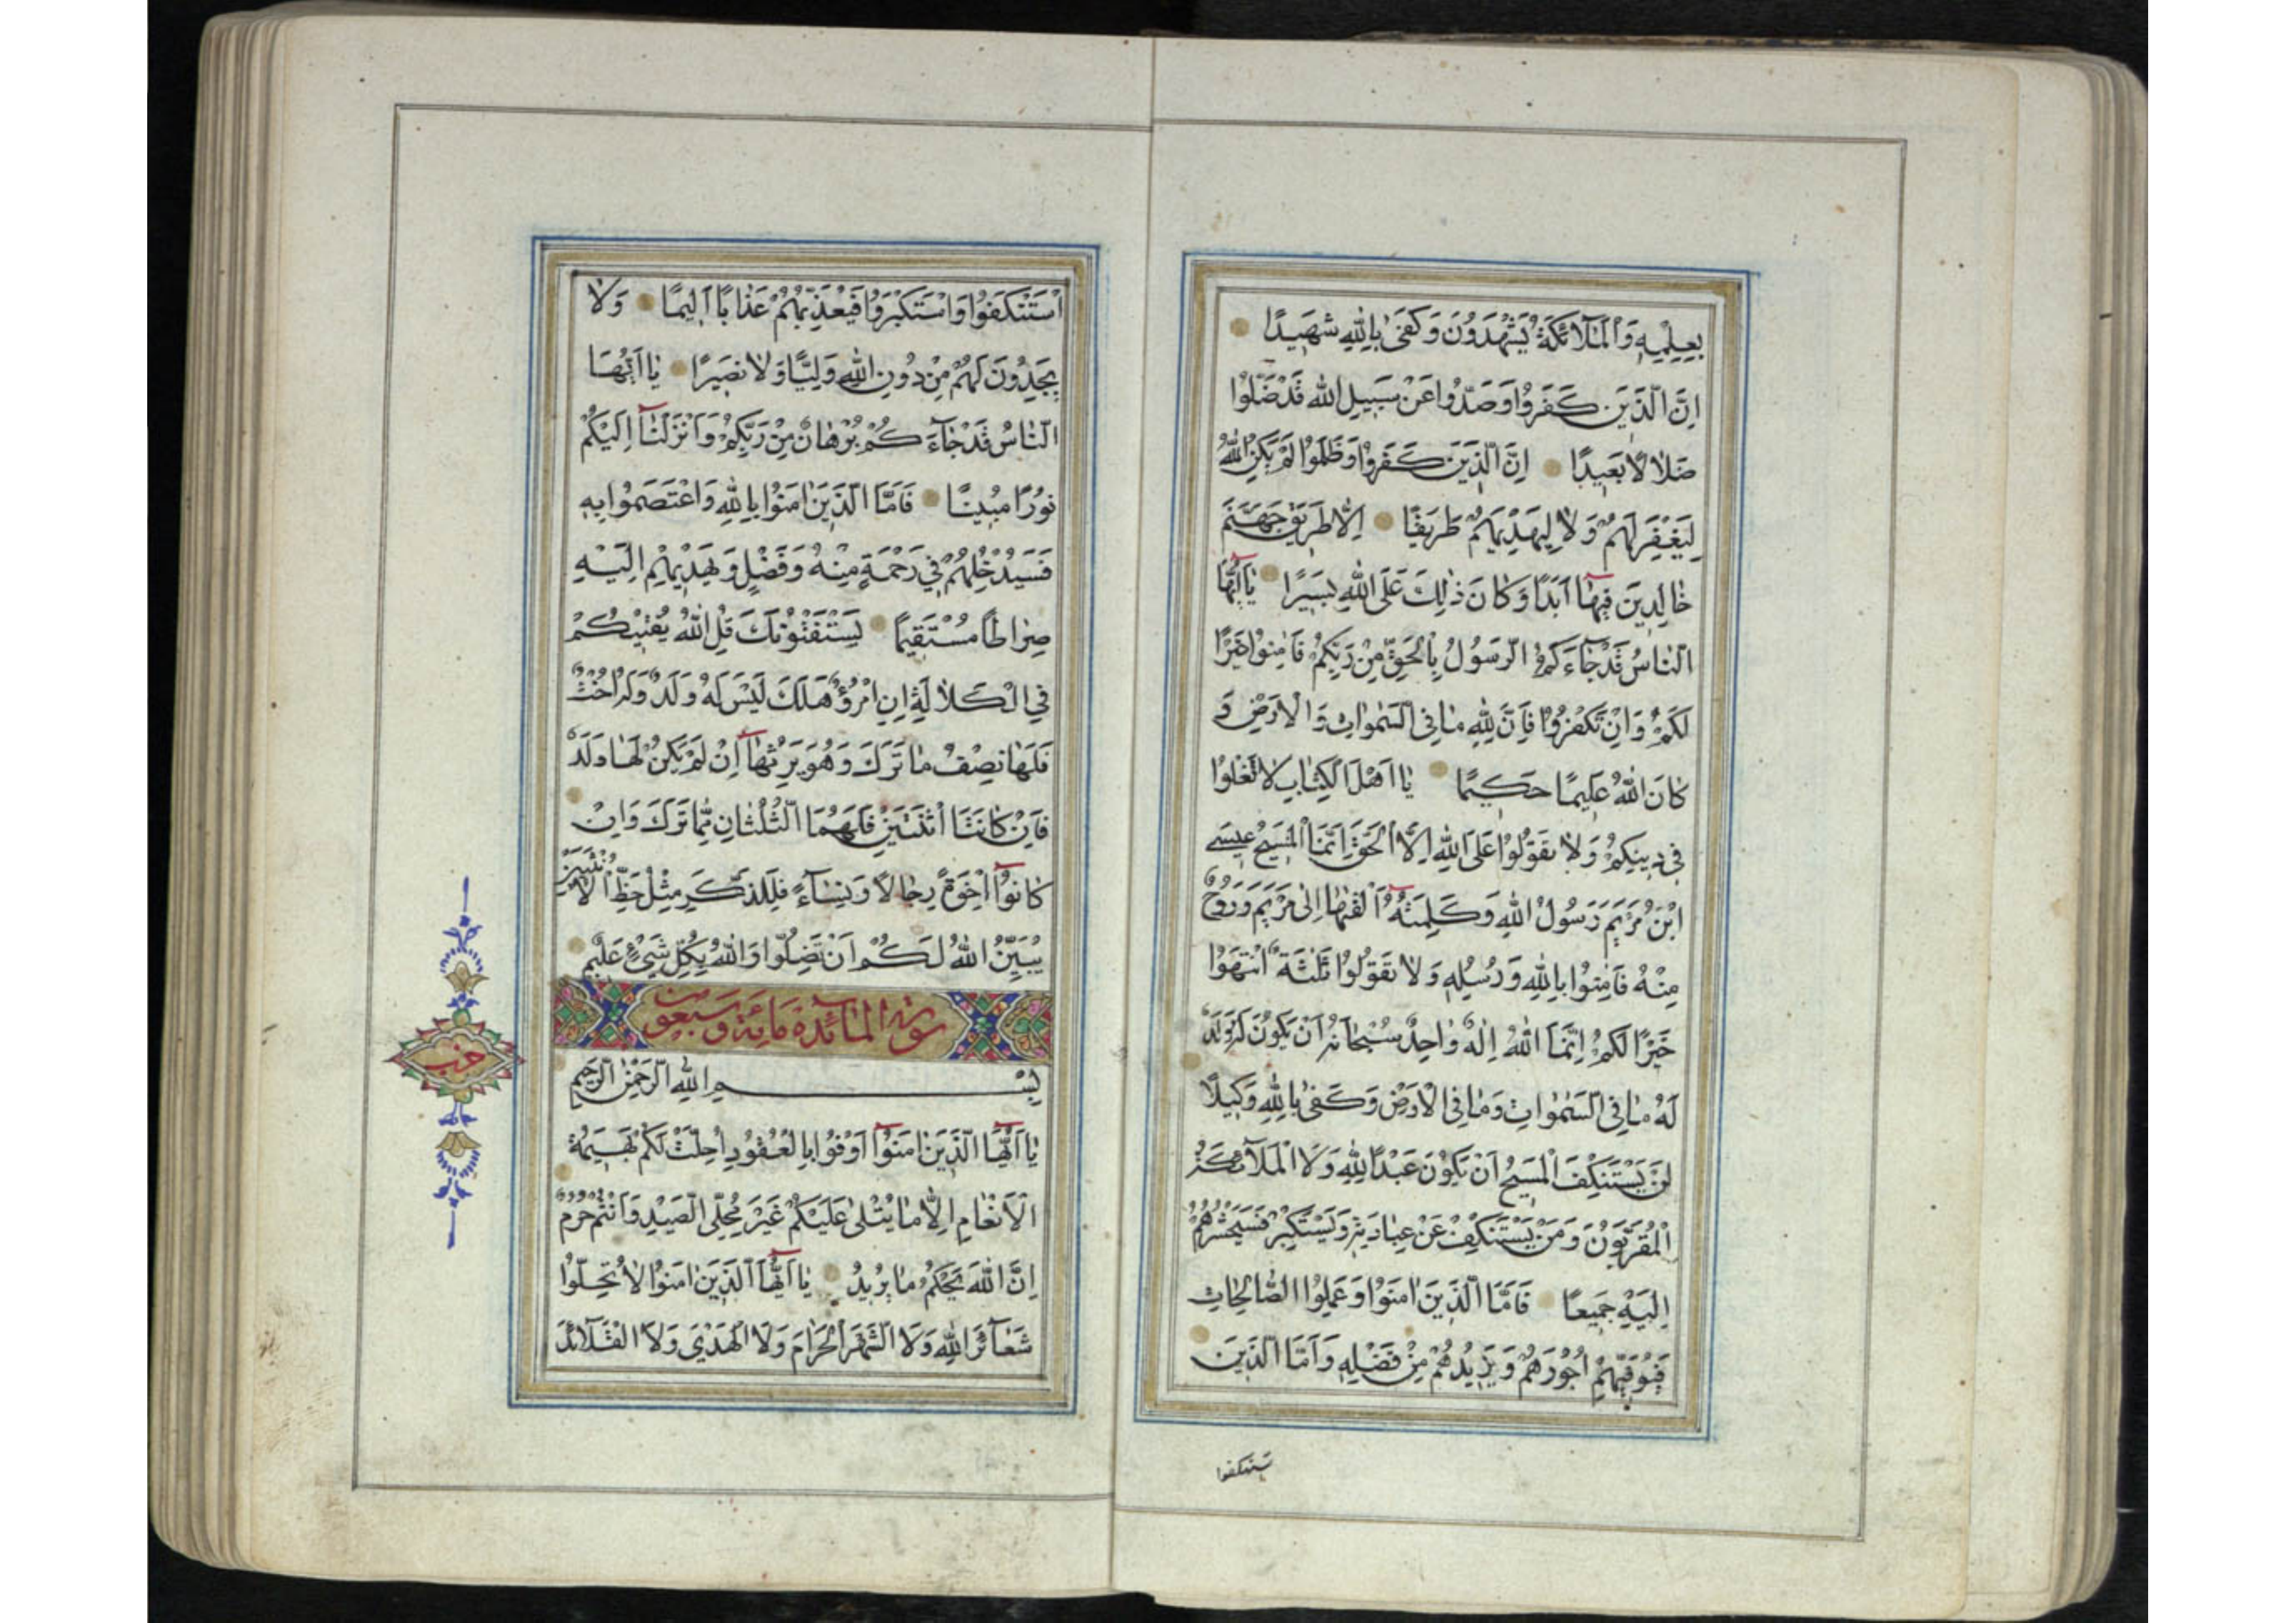 بِعِلْمِهِ وَالْمَلَآئِكَةُ يَشْهَدُونَ وَكَفَىٰ بِاللهِ شَهِيدًا
اِنَّ الَّذِينَ كَفَرُوا وَصَدُّوا عَنْ سَبِيلِ اللهِ قَدْ ضَلُّوا
ضَلَالًا بَعِيدًا اِنَّ الَّذِينَ كَفَرُوا وَظَلَمُوا لَمْ يَكُنِ اللهُ
لِيَغْفِرَ لَهُمْ وَلَا لِيَهْدِيَهُمْ طَرِيقًا اِلَّا طَرِيقَ جَهَنَّمَ
خَالِدِينَ فِيهَا اَبَدًا وَكَانَ ذٰلِكَ عَلَى اللهِ يَسِيرًا يَا اَيُّهَا
النَّاسُ قَدْ جَآءَكُمُ الرَّسُولُ بِالْحَقِّ مِنْ رَبِّكُمْ فَاٰمِنُوا خَيْرًا
لَكُمْ وَاِنْ تَكْفُرُوا فَاِنَّ لِلّٰهِ مَا فِي السَّمٰوَاتِ وَالْاَرْضِ وَ
كَانَ اللهُ عَلِيمًا حَكِيمًا يَا اَهْلَ الْكِتَابِ لَا تَغْلُوا
فِي دِينِكُمْ وَلَا تَقُولُوا عَلَى اللهِ اِلَّا الْحَقَّ اِنَّمَا الْمَسِيحُ عِيسَى
ابْنُ مَرْيَمَ رَسُولُ اللهِ وَكَلِمَتُهُ اَلْقٰيهَا اِلٰى مَرْيَمَ وَرُوحٌ
مِنْهُ فَاٰمِنُوا بِاللهِ وَرُسُلِهِ وَلَا تَقُولُوا ثَلٰثَةٌ انْتَهُوا
خَيْرًا لَكُمْ اِنَّمَا اللهُ اِلٰهٌ وَاحِدٌ سُبْحَانَهُ اَنْ يَكُونَ لَهُ وَلَدٌ
لَهُ مَا فِي السَّمٰوَاتِ وَمَا فِي الْاَرْضِ وَكَفٰى بِاللهِ وَكِيلًا
لَنْ يَسْتَنْكِفَ الْمَسِيحُ اَنْ يَكُونَ عَبْدًا لِلّٰهِ وَلَا الْمَلَآئِكَةُ
الْمُقَرَّبُونَ وَمَنْ يَسْتَنْكِفْ عَنْ عِبَادَتِهِ وَيَسْتَكْبِرْ فَسَيَحْشُرُهُمْ
اِلَيْهِ جَمِيعًا فَاَمَّا الَّذِينَ اٰمَنُوا وَعَمِلُوا الصَّالِحَاتِ
فَيُوَفِّيهِمْ اُجُورَهُمْ وَيَزِيدُهُمْ مِنْ فَضْلِهِ وَاَمَّا الَّذِينَ
ستنكفوا
اسْتَنْكَفُوا وَاسْتَكْبَرُوا فَيُعَذِّبُهُمْ عَذَابًا اَلِيمًا وَلَا
يَجِدُونَ لَهُمْ مِنْ دُونِ اللهِ وَلِيًّا وَلَا نَصِيرًا يَا اَيُّهَا
النَّاسُ قَدْ جَآءَكُمْ بُرْهَانٌ مِنْ رَبِّكُمْ وَاَنْزَلْنَآ اِلَيْكُمْ
نُورًا مُبِينًا فَاَمَّا الَّذِينَ اٰمَنُوا بِاللهِ وَاعْتَصَمُوا بِهِ
فَسَيُدْخِلُهُمْ فِي رَحْمَةٍ مِنْهُ وَفَضْلٍ وَيَهْدِيهِمْ اِلَيْهِ
صِرَاطًا مُسْتَقِيمًا يَسْتَفْتُونَكَ قُلِ اللهُ يُفْتِيكُمْ
فِي الْكَلَالَةِ اِنِ امْرُؤٌ هَلَكَ لَيْسَ لَهُ وَلَدٌ وَلَهُ اُخْتٌ
فَلَهَا نِصْفُ مَا تَرَكَ وَهُوَ يَرِثُهَآ اِنْ لَمْ يَكُنْ لَهَا وَلَدٌ
فَاِنْ كَانَتَا اثْنَتَيْنِ فَلَهُمَا الثُّلُثَانِ مِمَّا تَرَكَ وَاِنْ
كَانُوٓا اِخْوَةً رِجَالًا وَنِسَآءً فَلِلذَّكَرِ مِثْلُ حَظِّ الْاُنْثَيَيْنِ
يُبَيِّنُ اللهُ لَكُمْ اَنْ تَضِلُّوا وَاللهُ بِكُلِّ شَيْءٍ عَلِيمٌ
سورة المائدة مائة و سبعون
بِسْمِ اللهِ الرَّحْمٰنِ الرَّحِيمِ
يَا اَيُّهَا الَّذِينَ اٰمَنُوٓا اَوْفُوا بِالْعُقُودِ اُحِلَّتْ لَكُمْ بَهِيمَةُ
الْاَنْعَامِ اِلَّا مَا يُتْلٰى عَلَيْكُمْ غَيْرَ مُحِلِّي الصَّيْدِ وَاَنْتُمْ حُرُمٌ
اِنَّ اللهَ يَحْكُمُ مَا يُرِيدُ يَا اَيُّهَا الَّذِينَ اٰمَنُوا لَا تُحِلُّوا
شَعَآئِرَ اللهِ وَلَا الشَّهْرَ الْحَرَامَ وَلَا الْهَدْيَ وَلَا الْقَلَآئِدَ
حزب